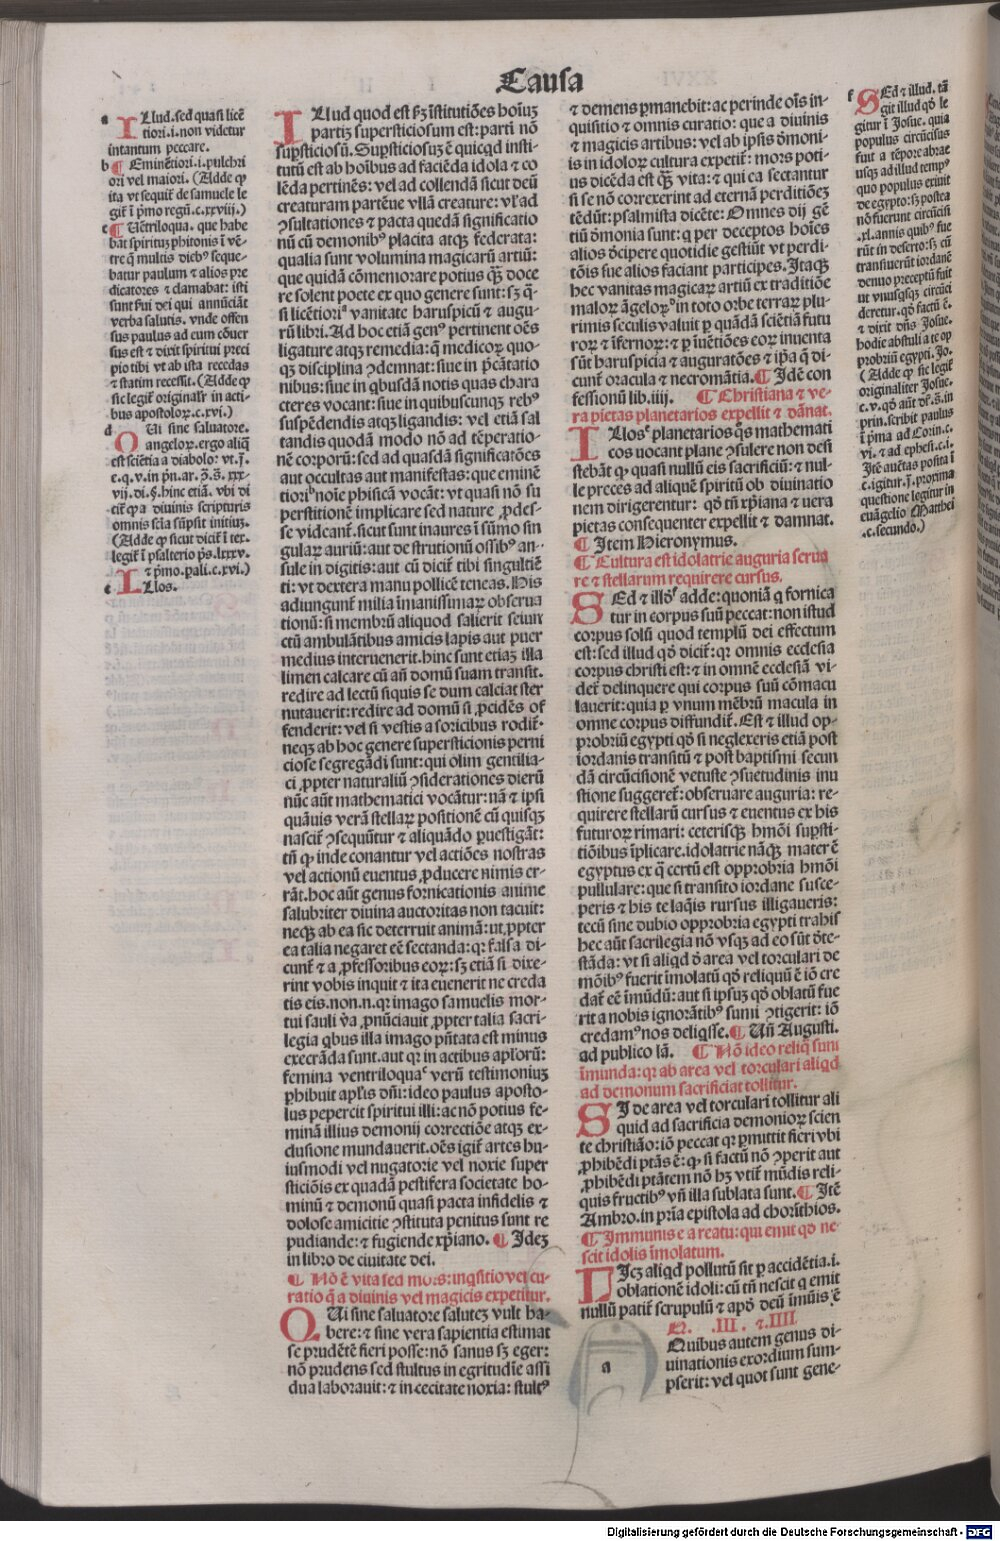 Causa
a Illud. sed quasi licē
tiori.i.non videtur
intantum peccare.
b ¶ Eminētiori.i.pulchri
ori vel maiori. (Adde ꝙ
ita vt sequiť de samuele le
giť ī pͥmo regū.c.xxviii.)
c ¶ Uētriloqua. que habe
bāt spiritū phitonis ī vē-
tre q̄ multis diebꝰ seque-
batur paulum ⁊ alios pre
dicatores ⁊ clamabat: isti
sunt fxui dei qui annūciāt
verba salutis. vnde offen
sus paulus ad eum cōuer
sus est ⁊ dixit spiritui preci
pio tibi vt ab ista recedas
⁊ statim recessit. (Adde ꝙ
sic legiť originalr̄ in acti-
bus apostoloꝝ.c.xvi.)
d Qui sine saluatore.
angeloꝝ. ergo aliq̄
est sciētia a diabolo: vt.j̄.
e.q.v.in pn̄.ar.
vij.di.§.hinc etiā. vbi di
ciť ꝙ a diuinis scripturis
omnis scīa sūpsit initiū.
(Adde ꝙ sicut diciť ī tex.
legiť ī psalterio ps̄.lxxxv.
⁊ pͥmo.ꝑali.c.xvi.)
e Illos.
Illud quod est sꝫ īstitutiōes hoīuꝫ
partiꝫ supersticiosum est: parti nō
suꝑsticiosū. Suꝑsticiosuꝫ ē quicqd insti-
tutū est ab hoībus ad faciēda idola ⁊ co
lēda pertinēs: vel ad collendā sicut deū
creaturam partēue vllā creature: vl̄ ad
ꝯsultationes ⁊ pacta quedā significatio
nū cū demonibꝰ placita atqꝫ federata:
qualia sunt volumina magicarū artiū:
que quidā cōmemorare potius qꝫ̄ doce
re solent poete ex quo genere sunt: sꝫ q̄-
si licētioriᵃ vanitate haruspicū ⁊ augu-
rū libri. Ad hoc etiā genꝰ pertinent oēs
ligature atqꝫ remedia: q̄ medicoꝝ quo-
qꝫ disciplina ꝯdemnat: siue in p̄cātatio
nibus: siue in qbusdā notis quas chara
cteres vocant: siue in quibuscunqꝫ rebꝰ
suspēdendis atqꝫ ligandis: vel etiā sal
tandis quodā modo nō ad tēperatio-
nē corporū: sed ad quasdā significatōes
aut occultas aut manifestas: que eminē
tioriᵇ noīe phisicā vocāt: vt quasi nō su
perstitionē implicare sed nature ꝓdes-
se videant̄. sicut sunt inaures ī sūmo sin
gulaꝝ auriū: aut de strutionū ossibꝰ an-
sule in digitis: aut cū diciť tibi singultiē
ti: vt dextera manu pollicē teneas. His
adiungunť milia īmanissimaꝝ obserua
tionū: si membrū aliquod salierit seiun
ctū ambulātibus amicis lapis aut puer
medius interuenerit. hinc sunt etiaꝫ illa
limen calcare cū añ domū suam transit.
redire ad lectū siquis se dum calciat ster
nutauerit: redire ad domū si ꝓcidēs of
fenderit: vel si vestis a soricibus rodiť.
neqꝫ ab hoc genere supersticionis perni
ciose segregādi sunt: qui olim gentilia-
ci ꝓpter naturaliū ꝯsiderationes dierū
nūc aūt mathematici vocātur: nā ⁊ ipsi
quāuis verā stellaꝝ positionē cū quisqꝫ
nasciť ꝯsequūtur ⁊ aliquādo ꝑuestigāt:
tn̄ ꝙ inde conantur vel actiōes nostras
vel actionū euentus ꝓducere nimis er-
rāt. hoc aūt genus fornicationis anime
salubriter diuina auctoritas non tacuit:
neqꝫ ab ea sic deterruit animā: ut ꝓpter
ea talia negaret eē sectanda: qr falsa di-
cunť ⁊ a ꝓfessoribus eoꝝ: sꝫ etiā si dixe-
rint vobis inquit ⁊ ita euenerit ne creda
tis eis. non.n.qr imago samuelis mor-
tui sauli v̄a ꝓnūciauit ꝓpter talia sacri-
legia qbus illa imago pn̄tata est minus
execrāda sunt. aut qr in actibus apl̄orū:
femina ventriloquaᶜ verū testimoniuꝫ
ꝑhibuit apl̄is dn̄i: ideo paulus aposto-
lus pepercit spiritui illi: ac nō potius fe-
minā illius demonij correctiōe atqꝫ ex-
clusione mundauerit. oēs igiť artes hu-
iusmodi vel nugatorie vel noxie super
sticiōis ex quadā pestifera societate ho-
minū ⁊ demonū quasi pacta infidelis ⁊
dolose amicitie ꝯstituta penitus sunt re
pudiande: ⁊ fugiende xp̄iano. ¶ Ideꝫ
in libro de ciuitate dei.
¶ Nō ē vita sed mors: inqsitio vel cu-
ratio q̄ a diuinis vel magicis expetitur.
Qui sine saluatore saluteꝫ vult ha-
bere: ⁊ sine vera sapientia estimat
se prudētē fieri posse: nō sanus sꝫ eger:
nō prudens sed stultus in egritudīe assi
dua laborauit: ⁊ in cecitate noxia: stultꝰ
⁊ demens ꝑmanebit: ac perinde oīs in-
quisitio ⁊ omnis curatio: que a diuinis
⁊ magicis artibus: vel ab ipsis dn̄moni-
is in idoloꝝ cultura expetiť: mors poti-
us dicēda est qꝫ̄ vita: ⁊ qui ea sectantur
si se nō correxerint ad eternā perditiōeꝫ
tēdūt: psalmista dicēte: Omnes dij gē
tiū dn̄monia sunt: q per deceptos hoīes
alios dn̄cipere quotidie gestiūt vt perdi-
tōis sue alios faciant participes. Itaqꝫ
hec vanitas magicaꝝ artiū ex traditiōe
maloꝝ āgeloꝝᵈ in toto orbe terraꝝ plu-
rimis seculis valuit ꝑ quādā sciētiā futu
roꝝ ⁊ īfernoꝝ: ⁊ ꝑ īuētiōes eoꝝ inuenta
sūt haruspicia ⁊ auguratōes ⁊ ip̄a q̄ di-
cunť oracula ⁊ necromātia. ¶ Idē con
fessionū lib.iiij. ¶ Christiana ⁊ ve-
ra pietas planetarios expellit ⁊ dānat.
Illosᵉ planetarios qs̄ mathemati
cos uocant plane ꝯsulere non desi
stebāt ꝙ quasi nullū eis sacrificiū: ⁊ nul-
le preces ad aliquē spiritū ob diuinatio
nem dirigerentur: qd̄ tn̄ xp̄iana ⁊ uera
pietas consequenter expellit ⁊ damnat.
¶ Item Hieronymus.
¶ Cultura est idolatrie auguria serua
re ⁊ stellarum requirere cursus.
Sed ⁊ illd̄ᶠ adde: quoniā q fornica
tur in corpus suū peccat: non istud
corpus solū quod templū dei effectum
est: sed illud qd̄ diciť: qr omnis ecclesia
corpus christi est: ⁊ in omnē ecclesiā vi-
deť delinquere qui corpus suū cōmacu
lauerit: quia ꝑ vnum mēbrū macula in
omne corpus diffundiť. Est ⁊ illud op-
probriū egypti qd̄ si neglexeris etiā post
iordanis transitū ⁊ post baptismi secun
dā circūcisionē vetuste ꝯsuetudinis inu
stione suggereť: obseruare auguria: re-
quirere stellarū cursus ⁊ euentus ex his
futuroꝝ rimari: ceterisqꝫ hmōi supsti-
tiōibus īplicare. idolatrie nāqꝫ mater ē
egyptus ex q̄ certū est opprobria hmōi
pullulare: que si transito iordane susce-
peris ⁊ his te laqis rursus illigaueris:
tecū sine dubio opprobria egypti trahis
hec aūt sacrilegia nō vsqꝫ ad eo sūt dn̄te-
stāda: vt si aliqd dn̄ area vel torculari de
mōibꝰ fuerit īmolatū qd̄ reliquū ē iō cre
dať eē īmūdū: aut si ipsuꝫ qd̄ oblatū fue
rit a nobis ignorātibꝰ sumi ꝯtigerit: iō
credamꝰ nos deliqsse. ¶ Uñ Augusti.
ad publico lā. ¶ Nō ideo reliq̄ sunt
īmunda: qr ab area vel torculari aliqd
ad demonum sacrificia tollitur.
Si de area vel torculari tollitur ali
quid ad sacrificia demonioꝝ scien
te christiāo: iō peccat qr ꝑmittit fieri vbi
ꝓhibēdi ptās ē: ꝙ si factū nō ꝯperit aut
ꝓhibēdi ptātem nō hꝫ vtiť mūdis reli-
quis fructibꝰ vñ illa sublata sunt. ¶ Itē
Ambro.in prīa epistola ad chorīthios.
¶ Immunis ē a reatu: qui emit qd̄ ne-
scit idolis īmolatum.
Licꝫ aliqd pollutū sit ꝑ accidētia.i.
oblationē idoli: cū tn̄ nescit q emit
nullū patiť scrupulū ⁊ apd̄ deū īmūīs ē
Q. .III. ⁊.IIII.
a Quibus autem genus di-
uinationis exordium sum-
pserit: vel quot sunt gene-
f Sed ⁊ illud. tā
git illud qd̄ le
gitur ī Josue. quia
populus circūcisus
fuit a tēpore abrae
usqꝫ ad illud tempꝰ
quo populus exiuit
de egypto: sꝫ postea
nō fuerunt circūcisi
.xl.annis quibꝰ fue
rūt in deserto: sꝫ cū
transiuerūt iordanē
denuo preceptū fuit
ut vnusqsqꝫ circūci
deretur. qd̄ factū ē.
⁊ dixit dn̄s Josue.
hodie abstuli a te op
probriū egypti. Jo-
(Adde ꝙ sic legiť
originaliter Josue.
c.v.
prin. scribit paulus
ī pͥma ad Corin.c.
vi. ⁊ ad ephesi.c.i.
Itē auētas posita ī
c.igitur.j̄. proxima
questione legitur in
euāgelio Matthei
.c.secundo.)
Digitalisierung gefördert durch die Deutsche Forschungsgemeinschaft - DFG